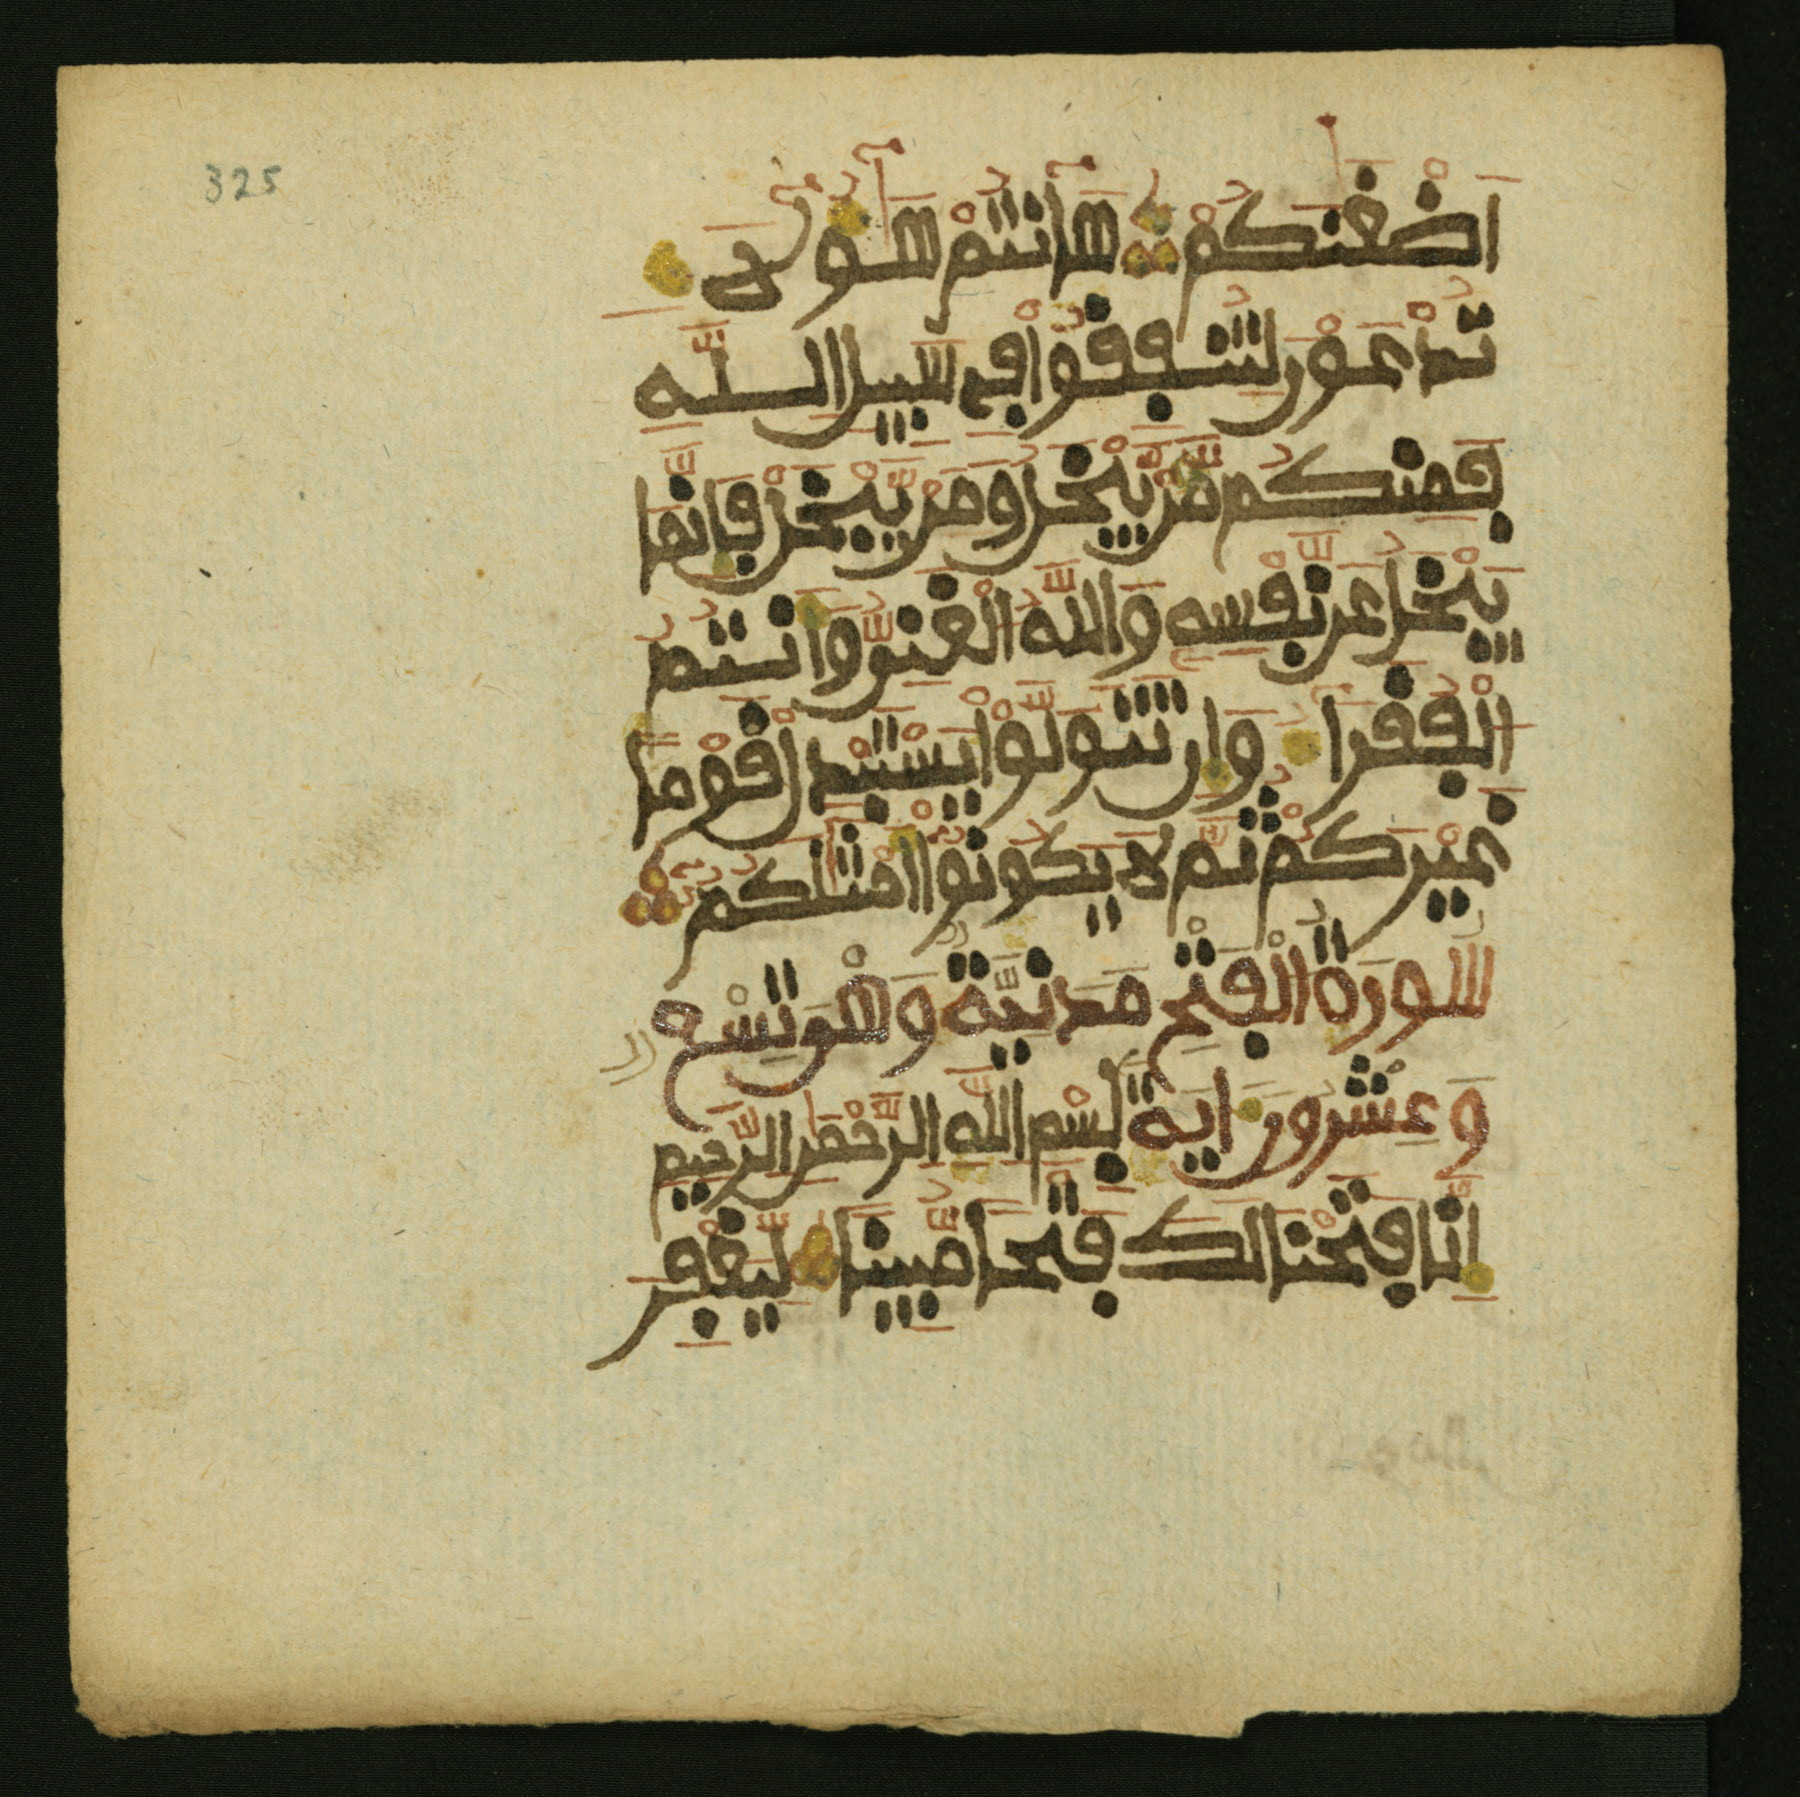 325
اَضْغَنَكُمْ هَآ أَنتُمْ هَـٰٓؤُلَآءِ
تُدْعَوْنَ لِتُنفِقُوا۟ فِى سَبِيلِ اللَّهِ
فَمِنكُم مَّن يَبْخَلُ وَمَن يَبْخَلْ فَإِنَّمَا
يَبْخَلُ عَن نَّفْسِهِ وَاللَّهُ الْغَنِىُّ وَأَنتُمُ
الْفُقَرَآءُ وَإِن تَتَوَلَّوْا يَسْتَبْدِلْ قَوْمًا
غَيْرَكُمْ ثُمَّ لَا يَكُونُوٓا أَمْثَـٰلَكُم
سُورَةُ الْفَتْحِ مَدَنِيَّةٌ وَهْىَ تِسْعٌ
وَعِشْرُونَ ايَةً بِسْمِ اللَّهِ الرَّحْمَـٰنِ الرَّحِيمِ
إِنَّا فَتَحْنَا لَكَ فَتْحًا مُّبِينًا لِّيَغْفِرَ